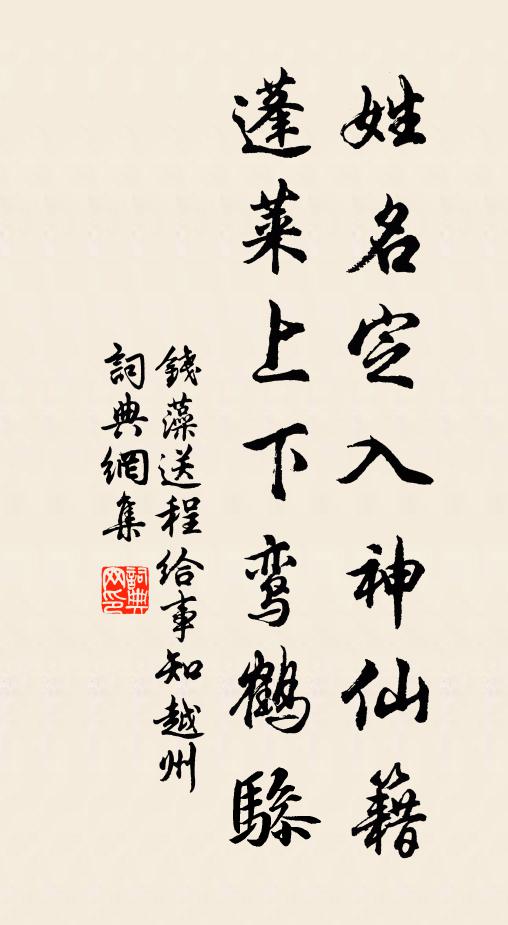 姓名定入神仙籍
蓬莱上下鸾鶴驂
錢藻送程給事知越州
詞典網集
詞典网印